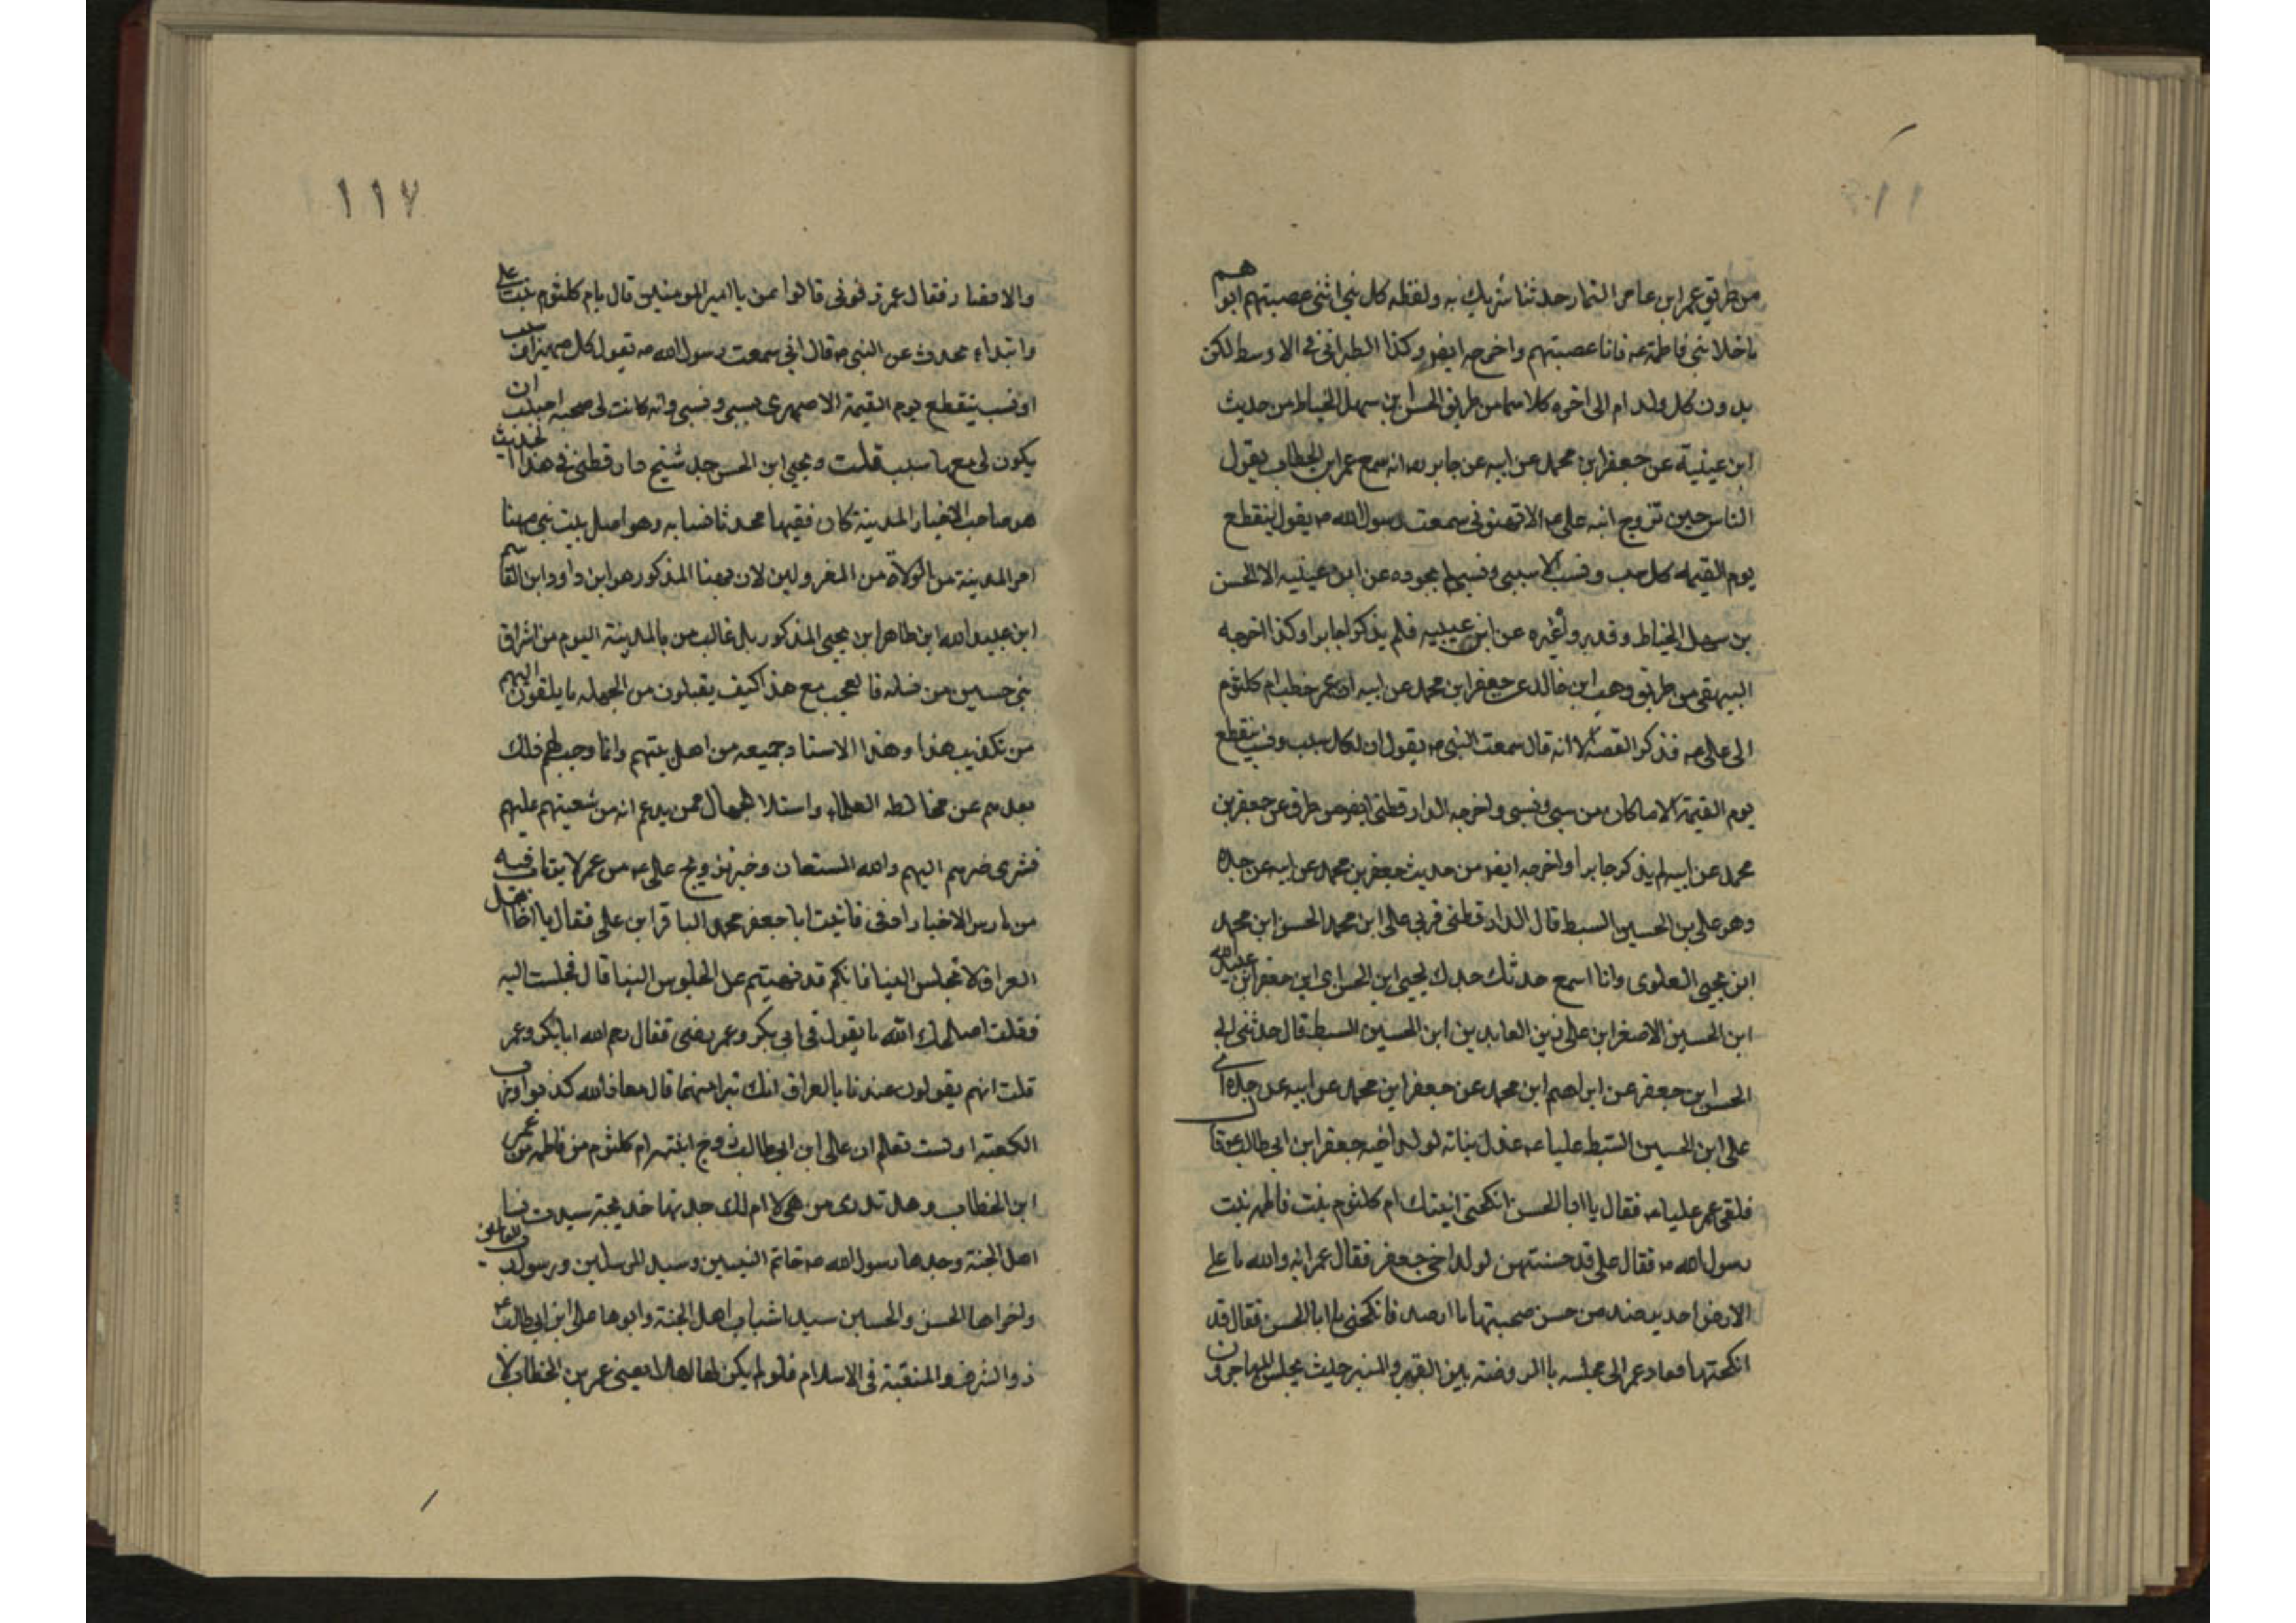 من طريق عمر ابن عامر التمار حدثنا شريك به ولفظه كل بني انثى عصبتهم ابوهم
ماخلا بني فاطمة عه فانا عصبتهم واخرجه ايضو وكذا الطبراني في الاوسط لكن
بدون كل ولد ام الى اخره كلاهما من طريق الحسن ابن سهل الخياط من حديث
ابن عينية عن جعفر ابن محمد عن ابيه عن جابر رضه انه سمع عمر ابن الخطاب يقول
الناس حين تزوج ابنه علي عه الا تهنوني سمعت رسول الله صه يقول ينقطع
يوم القيمة كل سبب ونسب الا سببي ونسبي عن ابن عينيه الا الحسن
بن سهل الخياط وقد رواه غيره عن ابن عينيه فلم يذكر جابرا وكذا اخرجه
البيهقي من طريق وهب ابن خالد عن جعفر ابن محمد عن ابيه ان عمر خطب ام كلثوم
الى علي عه فذكر القصة الا انه قال سمعت النبي صه يقول ان لكل سبب ونسب ينقطع
يوم القيمة الا ما كان من سببي ونسبي واخرجه الدارقطني ايضو من طرق عن جعفر بن
محمد عن ابيه لم يذكر جابرا واخرجه ايضو من حديث جعفر بن محمد عن ابيه عن جده
وهو علي بن الحسين السبط قال الدارقطني قري على ابن محمد الحسن ابن محمد
ابن يحيى العلوي وانا اسمع حدثك جدك يحيى ابن الحسن ابن جعفر ابن عبيد الله
ابن الحسين الاصغر ابن علي زين العابدين ابن الحسين السبط قال حدثني ابي
الحسن ابن جعفر عن ابراهيم ابن محمد عن جعفر ابن محمد عن ابيه عن جده اي
علي ابن الحسين السبط ان عليا عه عزل بناته لولد اخيه جعفر ابن ابي طالب عه قا
فلقي عمر عليا عه فقال يا ابا الحسن انكحني ابنتك ام كلثوم بنت فاطمه بنت
رسول الله صه فقال علي قد حبستهن لولد اخي جعفر فقال عمر انه والله ما على
الارض احد يرصد من حسن صحبتها ما ارصد فانكحني يا ابا الحسن فقال قد
انكحتها فعاد عمر الى مجلسه بالروضه بين القبر والمنبر حيث يجلس المهاجرون
١١٧
والانصار فقال عمر زفوني قالوا بمن يا امير المومنين قال بام كلثوم بنت علي
وابتداء يحدث عن النبي صه قال اني سمعت رسول الله صه يقول كل صهر او سبب
او نسب ينقطع يوم القيمة الا صهري وسببي ونسبي وانه كانت لي صحبه احببت ان
يكون لي معها سبب قلت ويحيى ابن الحسن جد شيخ دارقطني في هذا الحديث
هو صاحب الاخبار المدينة كان فقيها محدثا نسابه وهو اصل بيت بني مهنا
امر المدينة من الولاة من المعزولين لان مهنا المذكور هو ابن داود ابن القاسم
ابن عبيد الله ابن طاهر ابن يحيى المذكور بل غالب من بالمدينة اليوم من اشراق
بني حسين من نسله فالعجب مع هذا كيف يقبلون من الجهله ما يلقون اليهم
من تكذيب هذا وهذا الاسناد جميعه من اهل بيتهم وانما وجب لهم ذلك
بعدهم عن مخالطه العلماء واستلا الجهال ممن يدعم انه من شعيتهم عليهم
فسرى ضرهم اليهم والله المستعان وخبر تزويج علي عه من عمر لا يقاب فيه
من مارس الاخبار فاتيت ابا جعفر محمد الباقر ابن علي فقال يا اخا اهل
العراق لا تجلس الينا فانكم قد نهيتم عن الجلوس الينا قال فجلست اليه
فقلت اصلحك الله ما يقول في ابي بكر وعمر رضى فقال رحم الله ابا بكر وعمر
قلت انهم يقولون عندنا بالعراق انك تبرا منهما قال معاذ الله كذبوا ورب
الكعبة اولست تعلم ان علي ابن ابي طالب زوج ابنته ام كلثوم من فاطمه من عمر
ابن الخطاب وهل تدري من هي لا ام لك جدتها خديجة سيدت نسا
اهل الجنة وجدها رسول الله صه خاتم النبيين وسيد المرسلين ورسول رب العالمين
واخواها الحسن والحسين سيدا شباب اهل الجنة وابوها علي ابن ابي طالب عه
ذو الشرف والمنقبة في الاسلام فلو لم يكن لها اهلا يعني عمر بن الخطاب لا